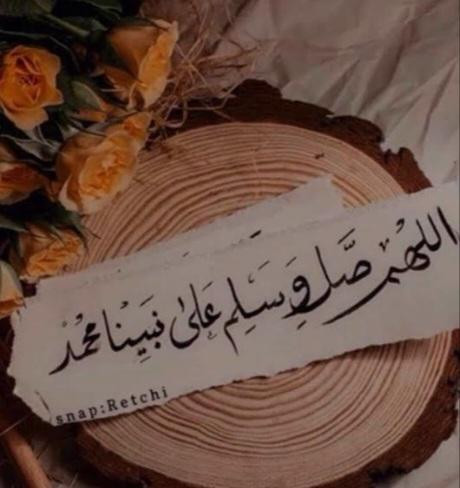 اللهم صل وسلم على نبينا محمد
snap:Retchi